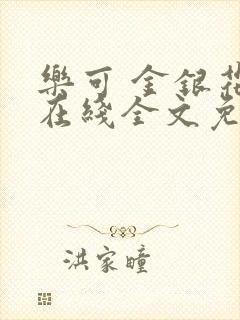 樂可 金銀花
在綫全文免
洪家瞳